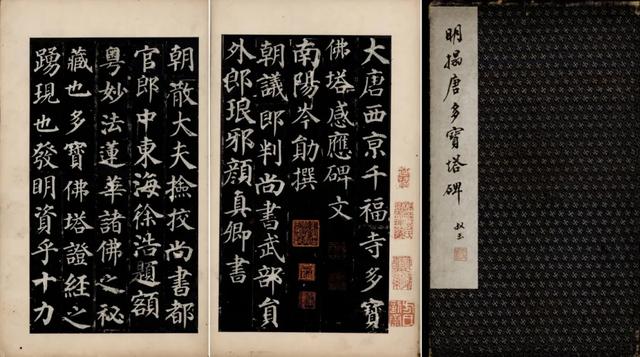 明搨唐多寶塔碑
大唐西京千福寺多寶
佛塔感應碑文
南陽岑勛撰
朝議郎判尚書武部員
外郎琅邪顏真卿書
朝散大夫撿挍尚書都
官郎中東海徐浩題額
粵妙法蓮華諸佛之祕
藏也多寶佛塔證經之
踴現也發明資乎十力